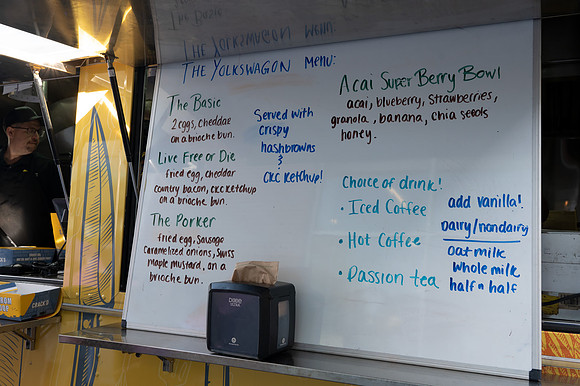 THE YOLKSWAGON MENU:
The Basic
2 eggs, cheddar
on a brioche bun.
Live Free or Die
fried egg, cheddar
country bacon, CKC ketchup
on a brioche bun.
The Porker
fried egg, sausage
caramelized onions, swiss
maple mustard, on a
brioche bun.
Served with
crispy
hashbrowns
&
CKC Ketchup!
Acai Super Berry Bowl
acai, blueberry, strawberries,
granola, banana, chia seeds
honey.
Choice of drink!
• Iced Coffee
• Hot Coffee
• Passion tea
add vanilla!
Dairy/nondairy
oat milk
whole milk
half n half